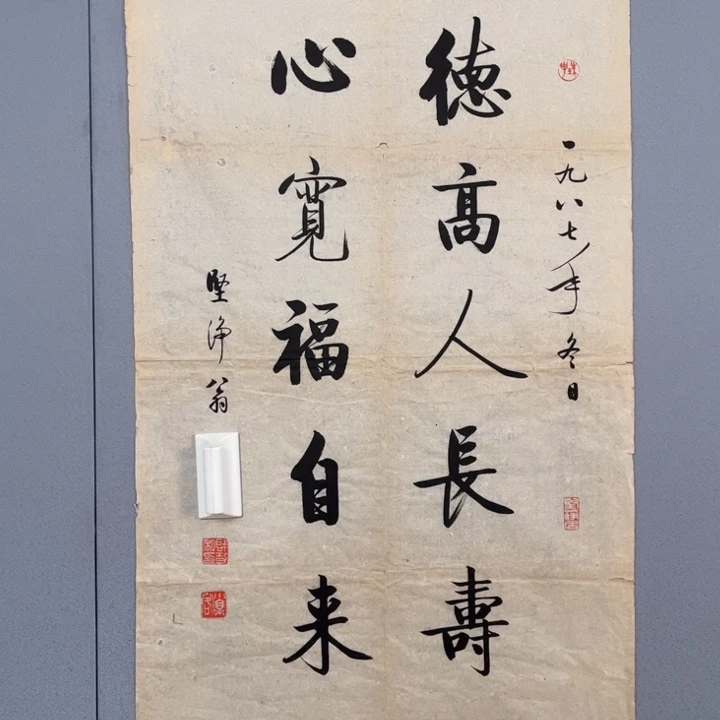 一九八七年冬日
德高人長壽
心寬福自来
堅淨翁